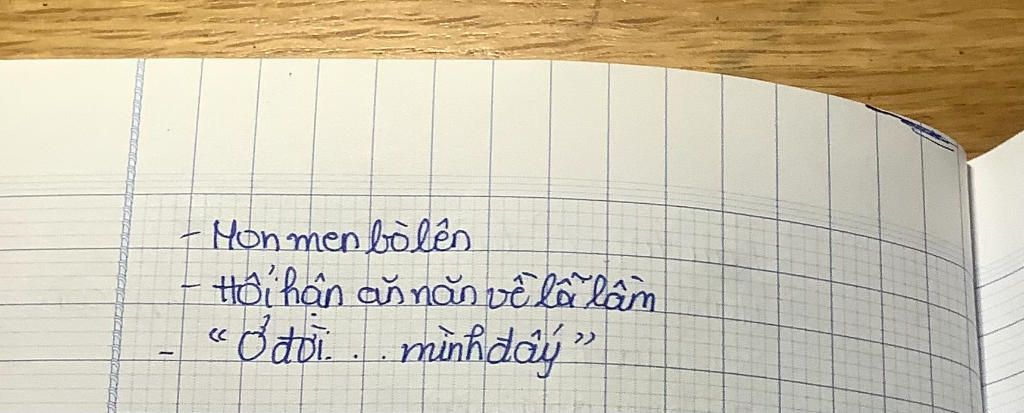 - Mon men bò lên
- Hối hận ăn năn về lỗi lầm
- “Ở đời... mình đấy”